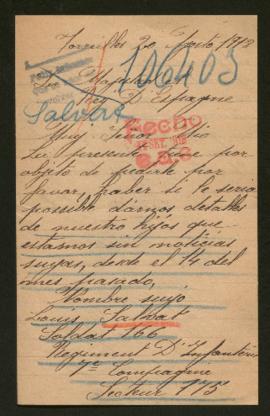 Torreilles 20 Agosto 1918
106403
Su Majestad
Rey D'Espagne
Salvat
Muy Señor Mio
Hecho
La presente tiene por
objeto de pedirle por
favor, saber si le seria
possible darnos detalles
de nuestro hijos que
estasmos sin noticias
suyas, desde el 14 del
mes pasado,
Nombre suyo
Louis Salvat
Soldat 166
Regiment D'Infanterie
Compagnie
Secteur 175